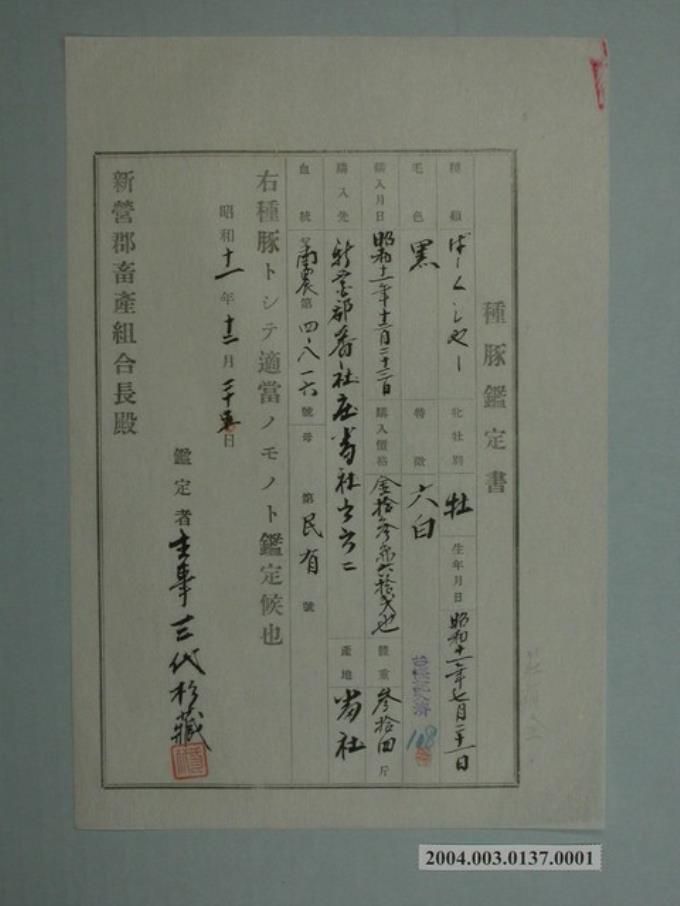 種豚鑑定書
種類 ばーくしやー 牝牡別 牡 生年月日 昭和十一年七月二十一日
毛色 黒 特徴 六白
118
購入月日 昭和十一年十二月二十三日 購入價格 金拾参円六拾 也 體重 参拾四斤
購入先 新營郡番社庄番社 六二 產地 番社
血統 南農第四八一六號 母 第民有號
右種豚トシテ適當ノモノト鑑定候也
昭和十一年十二月二十五日
鑑定者 三代杉藏
新營郡畜產組合長殿
2004.003.0137.0001